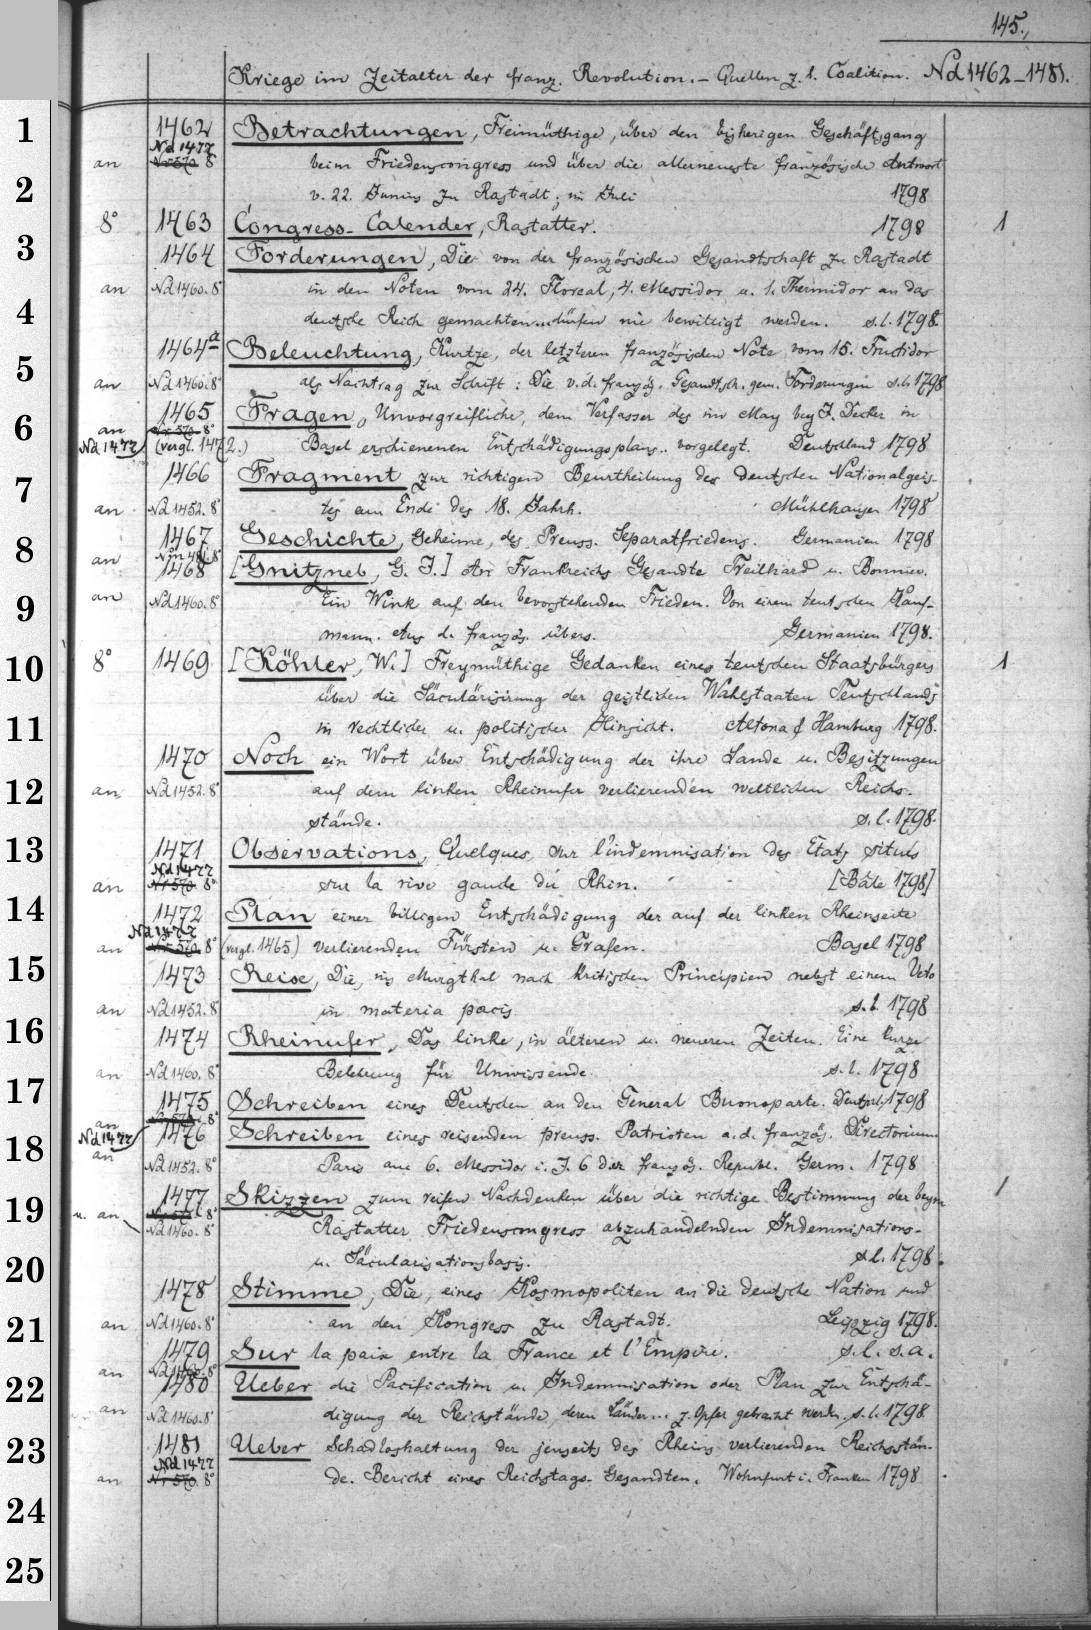 145.
Kriege im Zeitalter der franz. Revolution. – Quellen z. 1. Coalition. Nd 1462–1481.
1 1462 Betrachtungen, Freimüthige, über den bisherigen Geschäftsgang
Nd 1477
an Nr 570 8° beim Friedenscongress und über die allerneueste französische Antwort
2 v. 22. Junius zu Rastadt; im Juli 1798
8° 1463 Congress-Calender, Rastatter. 1798 1
3 1464 Forderungen, Die von der französischen Gesandtschaft zu Rastadt
an Nd 1460. 8° in den Noten vom 24. Floreal, 4. Messidor u. 1. Thermidor an das
4 deutsche Reich gemachten... dürfen nie bewilligt werden. s.l. 1798.
1464a Beleuchtung, Kurtze, der letzteren französischen Note vom 15. Fructidor
5 an Nd 1460. 8° als Nachtrag zur Schrift: Die v. d. französ. Gesandtsch. gem. Forderungen s.l. 1798
1465 Fragen, Unvorgreifliche, dem Verfasser des im May bey J. Decker in
6 an Nr 570 8°
Nd 1472 (vergl. 1472.) Basel erschienenen Entschädigungsplans.. vorgelegt. Deutschland 1798
1466 Fragment zur richtigen Beurtheilung des deutschen Nationalgeis-
7 an Nd 1452. 8° tes am Ende des 18. Jahrh. Mühlhausen 1798
1467 Geschichte, Geheime, des Preuss. Separatfriedens. Germanien 1798
8 an
1468 [Gnitzneb, G. J.] An Frankreichs Gesandte Treilhard u. Bonnier.
9 an Nd 1460. 8° Ein Wink auf den bevorstehenden Frieden. Von einem teutschen Kauf-
mann. Aus d. französ. übers. Germanien 1798.
10 8° 1469 [Köhler, W.] Freymüthige Gedanken eines teutschen Staatsbürgers 1
über die Säcularisirung der geistlichen Wahlstaaten Teutschlands
11 in rechtlicher u. politischer Hinsicht. Altona & Hamburg 1798.
1470 Noch ein Wort über Entschädigung der ihre Lande u. Besitzungen
12 an Nd 1452. 8° auf dem linken Rheinufer verlierenden weltlichen Reichs-
stände. s.l. 1798.
13 1471 Observations, Quelques, sur l'indemnisation des Etats situés
Nd 1477
an Nr 570 8° sur la rive gauche du Rhin. [Bâle 1798]
14 1472 Plan einer billigen Entschädigung der auf der linken Rheinseite
Nd 1477
an Nr 570 8° (vergl. 1465) verlierenden Fürsten u. Grafen. Basel 1798
15 1473 Reise, Die, ins Murgthal nach kritischen Principien nebst einem Veto
an Nd 1452. 8° in materia pacis s.l. 1798
16 1474 Rheinufer, Das linke, in älteren u. neueren Zeiten. Eine kurze
an Nd 1460. 8° Belehrung für Unwissende. s.l. 1798
17 1475 Schreiben eines Deutschen an den General Buonoparte. Deutschl. 1798
an Nr 570 8°
18 Nd 1477 1476 Schreiben eines reisenden preuss. Patrioten a. d. französ. Directorium
an Nd 1452. 8° Paris am 6. Messidor i. J. 6 der französ. Republ. Germ. 1798
1477 Skizzen zum reifen Nachdenken über die richtige Bestimmung der beym 1
19 u. an
Nd 1460. 8° Rastatter Friedenscongress abzuhandelnden Indemnisations-
20 u. Säcularisationsbasis. s.l. 1798.
1478 Stimme, Die, eines Kosmopoliten an die deutsche Nation und
21 an Nd 1460. 8° an den Kongress zu Rastadt. Leipzig 1798.
1479 Sur la paix entre la France et l'Empire. s.l. s.a.
an Nd 1460. 8°
22 1480 Ueber die Pacification u. Indemnisation oder Plan zur Entschä-
an Nd 1460. 8° digung der Reichstände, deren Länder... z. Opfer gebracht werden. s.l. 1798
23 1481 Ueber Schadloshaltung der jenseits des Rheins verlierenden Reichsstän-
Nd 1477
an Nr 570. 8° de. Bericht eines Reichstags-Gesandten. Wohnfurt i. Franken 1798
24
25